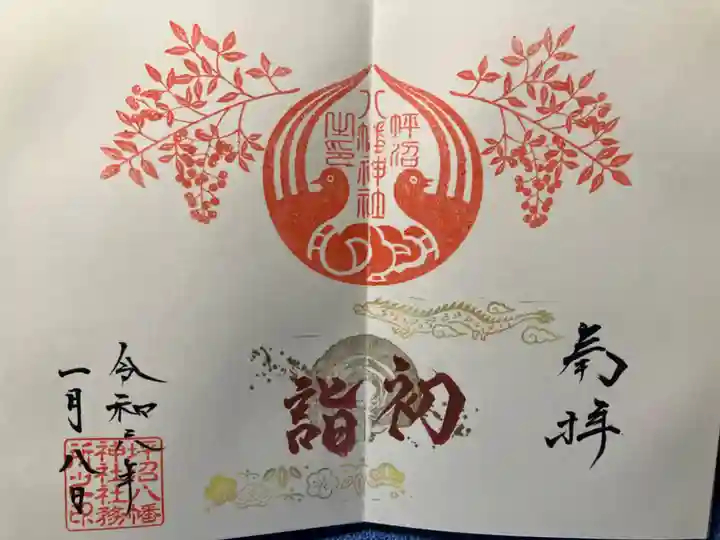 奉拝
坪沼
八幡神社
之印
初詣
令和六年
一月八日
坪沼八幡
神社社務
所之印